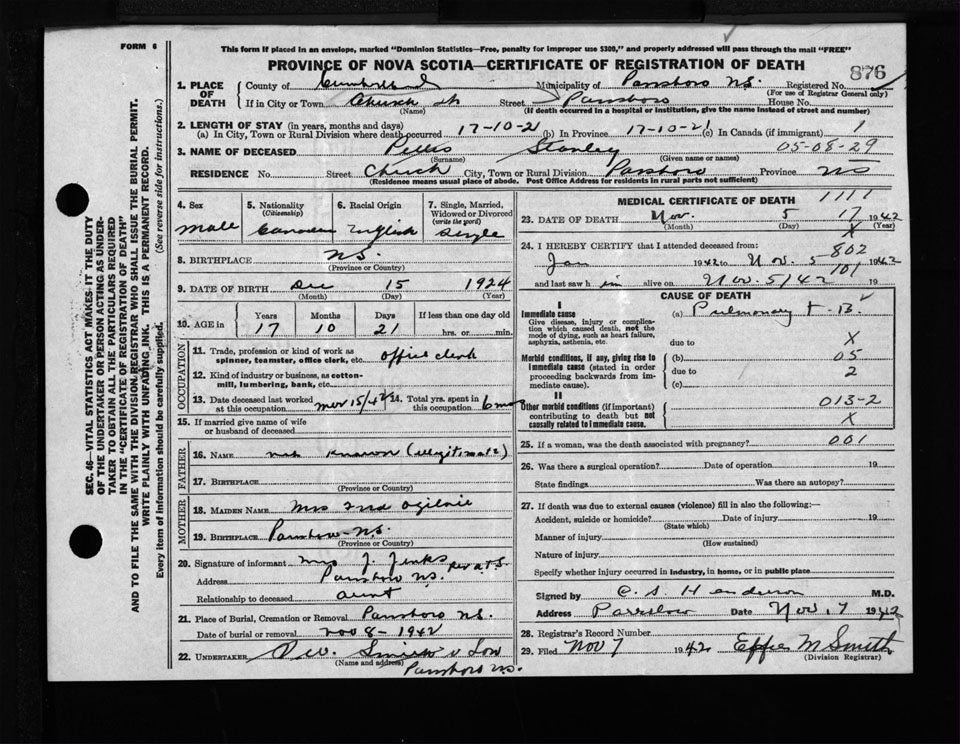 FORM 6
This form if placed in an envelope, marked "Dominion Statistics—Free, penalty for improper use $300," and properly addressed will pass through the mail "FREE"
PROVINCE OF NOVA SCOTIA—CERTIFICATE OF REGISTRATION OF DEATH
876
1. PLACE OF DEATH County of Cumberland Municipality of Parrsboro N.S. Registered No.
(For use of Registrar General only)
If in City or Town Church St Street Parrsboro House No.
(Name) (If death occurred in a hospital or institution, give the name instead of street and number)
2. LENGTH OF STAY (in years, months and days)
(a) In City, Town or Rural Division where death occurred 17-10-21 (b) In Province 17-10-21 (c) In Canada (if immigrant) 1
3. NAME OF DECEASED Stanley 05-08-29
(Surname) (Given name or names)
RESIDENCE No. Street Church City, Town or Rural Division Parrsboro Province NS
(Residence means usual place of abode. Post Office Address for residents in rural parts not sufficient)
4. Sex
Male
5. Nationality
(Citizenship)
Canadian
6. Racial Origin
English
7. Single, Married, Widowed or Divorced
(write the word)
Single
8. BIRTHPLACE N.S.
(Province or Country)
9. DATE OF BIRTH Dec 15 1924
(Month) (Day) (Year)
10. AGE in Years Months Days If less than one day old
17 10 21 hrs. or min.
OCCUPATION
11. Trade, profession or kind of work as spinner, teamster, office clerk, etc. office clerk
12. Kind of industry or business, as cotton-mill, lumbering, bank, etc.
13. Date deceased last worked at this occupation 15/42 14. Total yrs. spent in this occupation 6 mos
15. If married give name of wife or husband of deceased
FATHER
16. NAME not known (illegitimate)
17. BIRTHPLACE
(Province or Country)
MOTHER
18. MAIDEN NAME Mrs Ogilvie
19. BIRTHPLACE Parrsboro N.S.
(Province or Country)
20. Signature of informant Mrs J. Jenks
Address Parrsboro N.S.
Relationship to deceased aunt
21. Place of Burial, Cremation or Removal Parrsboro N.S.
Date of burial or removal Nov 8 - 1942
22. UNDERTAKER Smith & Son
(Name and address)
Parrsboro N.S.
MEDICAL CERTIFICATE OF DEATH
1111
23. DATE OF DEATH Nov. 5 17 1942
(Month) (Day) (Year)
X
24. I HEREBY CERTIFY that I attended deceased from: 802
Jan 1942 to Nov. 5 1942
101
and last saw him alive on Nov 5/42 19
CAUSE OF DEATH
I
Immediate cause
Give disease, injury or complication which caused death, not the mode of dying, such as heart failure, asphyxia, asthenia, etc.
(a) Pulmonary T.B.
due to X
Morbid conditions, if any, giving rise to immediate cause (stated in order proceeding backwards from immediate cause).
(b) 05
due to 2
(c)
II
Other morbid conditions (if important) contributing to death but not causally related to immediate cause.
013-2
X
25. If a woman, was the death associated with pregnancy? 001
26. Was there a surgical operation? Date of operation 19
State findings Was there an autopsy?
27. If death was due to external causes (violence) fill in also the following:—
Accident, suicide or homicide? Date of injury 19
(State which)
Manner of injury
(How sustained)
Nature of injury
Specify whether injury occurred in industry, in home, or in public place
Signed by C. S. Henderson M.D.
Address Parrsboro Date Nov. 7 1942
28. Registrar's Record Number
29. Filed Nov 7 1942 Effie M Smith
(Division Registrar)
SEC. 46—VITAL STATISTICS ACT MAKES IT THE DUTY
OF THE UNDERTAKER OR PERSON ACTING AS UNDER-
TAKER TO OBTAIN ALL THE PARTICULARS REQUIRED
IN THE "CERTIFICATE OF REGISTRATION OF DEATH"
AND TO FILE THE SAME WITH THE DIVISION REGISTRAR WHO SHALL ISSUE THE BURIAL PERMIT.
WRITE PLAINLY WITH UNFADING INK. THIS IS A PERMANENT RECORD.
Every item of information should be carefully supplied. (See reverse side for instructions.)